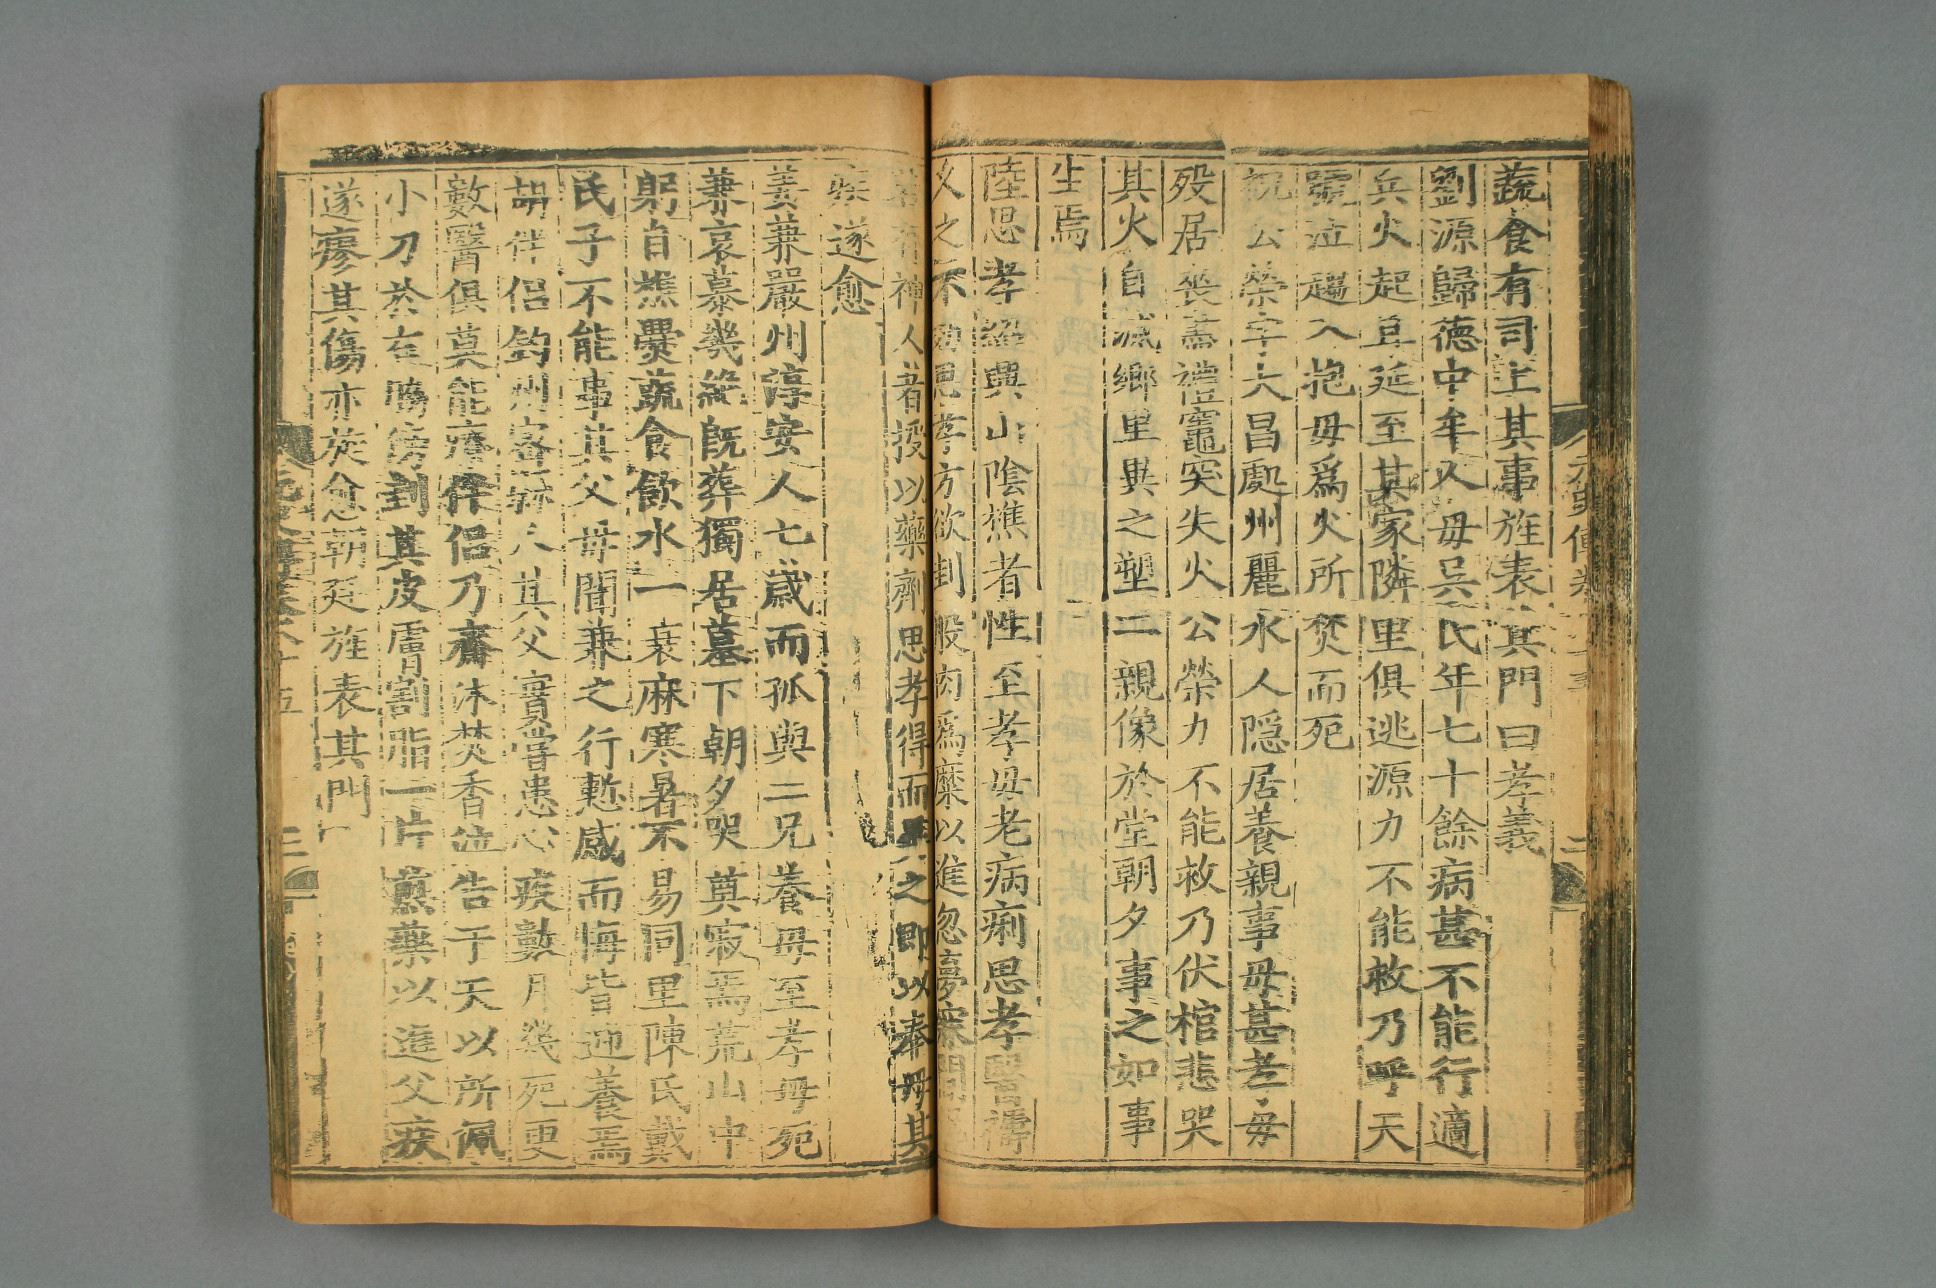 蔬食有司上其事旌表其門曰孝義
劉源歸德中牟人母吳氏年七十餘病甚不能行適
兵火起且延至其家隣里俱逃源力不能救乃呼天
號泣趨入抱母爲火所焚而死
祝公榮字大昌處州麗水人隱居養親事母甚孝母
歿居喪盡禮竈突失火公榮力不能救乃伏棺悲哭
其火自滅鄉里異之塑二親像於堂朝夕事之如事
生焉
陸思孝紹興山陰樵者性至孝母老病痢思孝醫禱
久之不 思孝方欲刲股肉爲糜以進忽夢寐間
若有神人者授以藥劑思孝得而 之即以奉母其
疾遂愈
姜兼嚴州淳安人七歲而孤與二兄養母至孝母死
兼哀慕幾絶既葬獨居墓下朝夕哭奠寂焉荒山中
躬自樵爨蔬食飲水一衰麻寒暑不易同里陳氏戴
氏子不能事其父母聞兼之行慙感而悔皆迎養焉
胡伴侶鈞州密縣人其父實嘗患心疾數月幾死更
數醫俱莫能療伴侶乃齋沐焚香泣告于天以所佩
小刀於右脇傍刲其皮膚割脂一片煎藥以進父疾
遂瘳其傷亦旋愈朝廷旌表其門